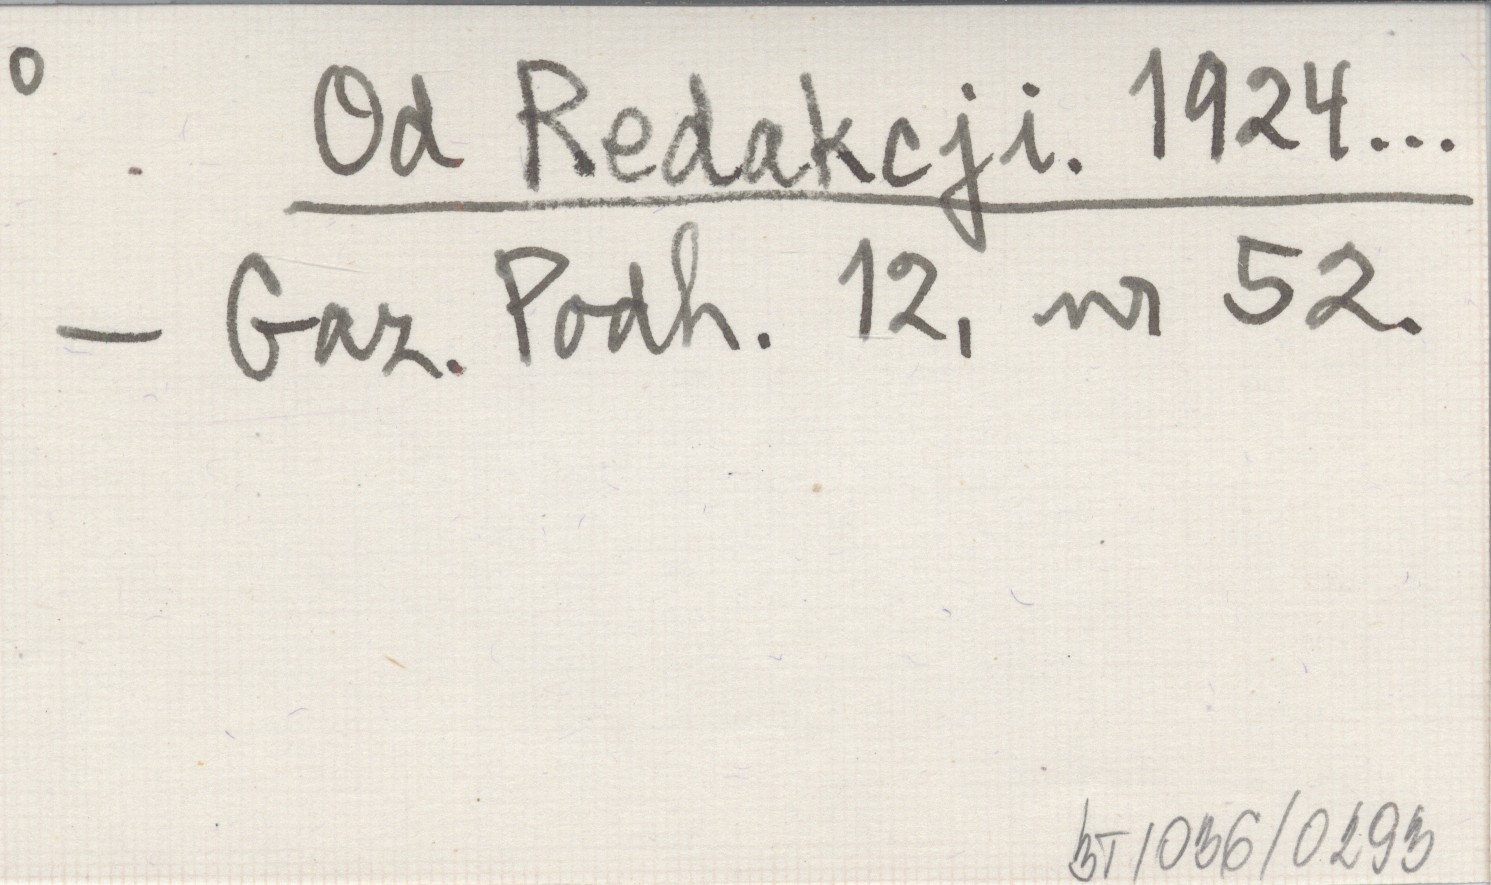 o Od Redakcji. 1924...
— Gaz. Podh. 12, nr 52.
BT/036/0293